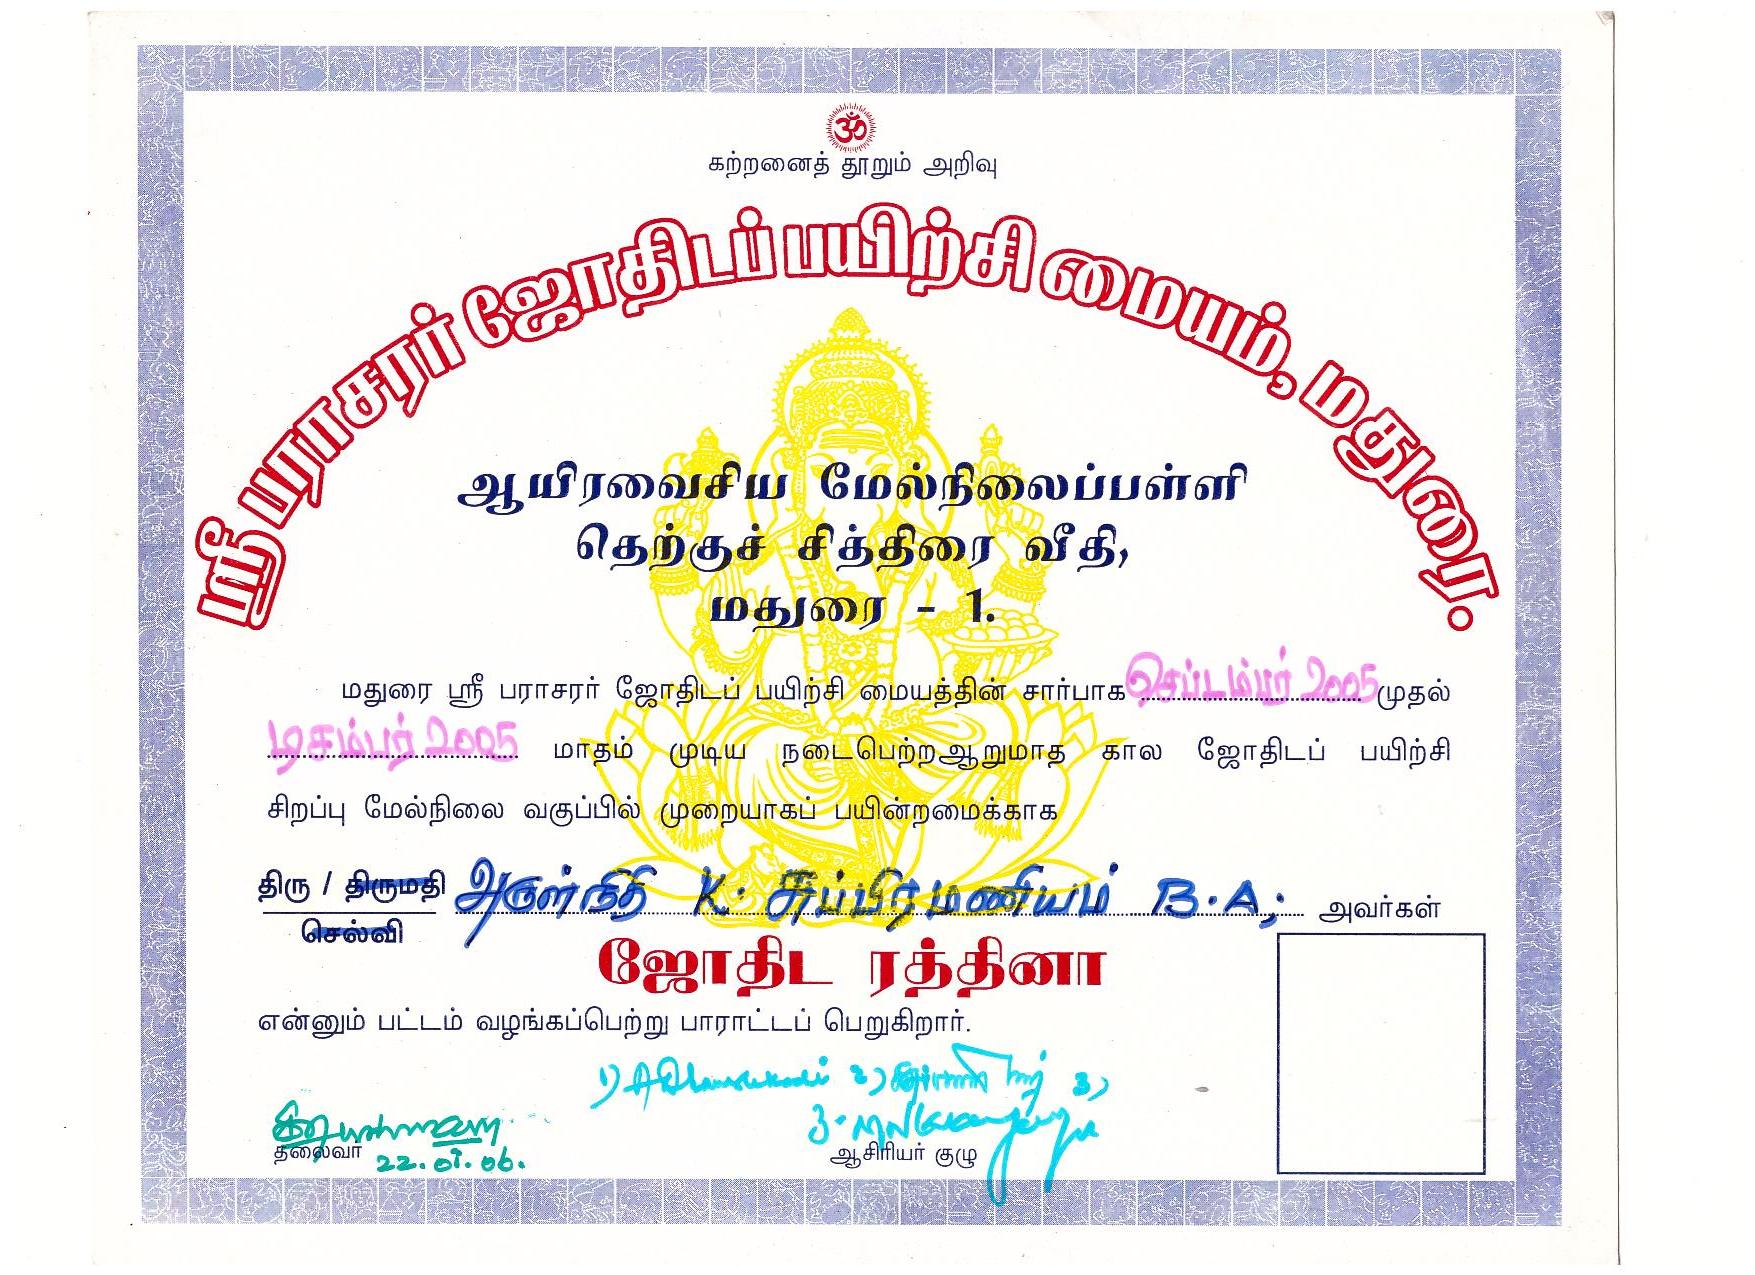 ॐ
கற்றனைத் தூறும் அறிவு
ஸ்ரீ பராசரர் ஜோதிடப் பயிற்சி மையம், மதுரை.
ஆயிரவைசிய மேல்நிலைப்பள்ளி
தெற்குச் சித்திரை வீதி,
மதுரை - 1.
மதுரை ஸ்ரீ பராசரர் ஜோதிடப் பயிற்சி மையத்தின் சார்பாக செப்டம்பர் 2005 முதல்
டிசம்பர் 2005 மாதம் முடிய நடைபெற்றஆறுமாத கால ஜோதிடப் பயிற்சி
சிறப்பு மேல்நிலை வகுப்பில் முறையாகப் பயின்றமைக்காக
திரு / திருமதி அருள்நிதி K. சுப்பிரமணியம் B.A; அவர்கள்
செல்வி
ஜோதிட ரத்தினா
என்னும் பட்டம் வழங்கப்பெற்று பாராட்டப் பெறுகிறார்.
1) 2) 3)
தலைவர் 22.01.06. ஆசிரியர் குழு